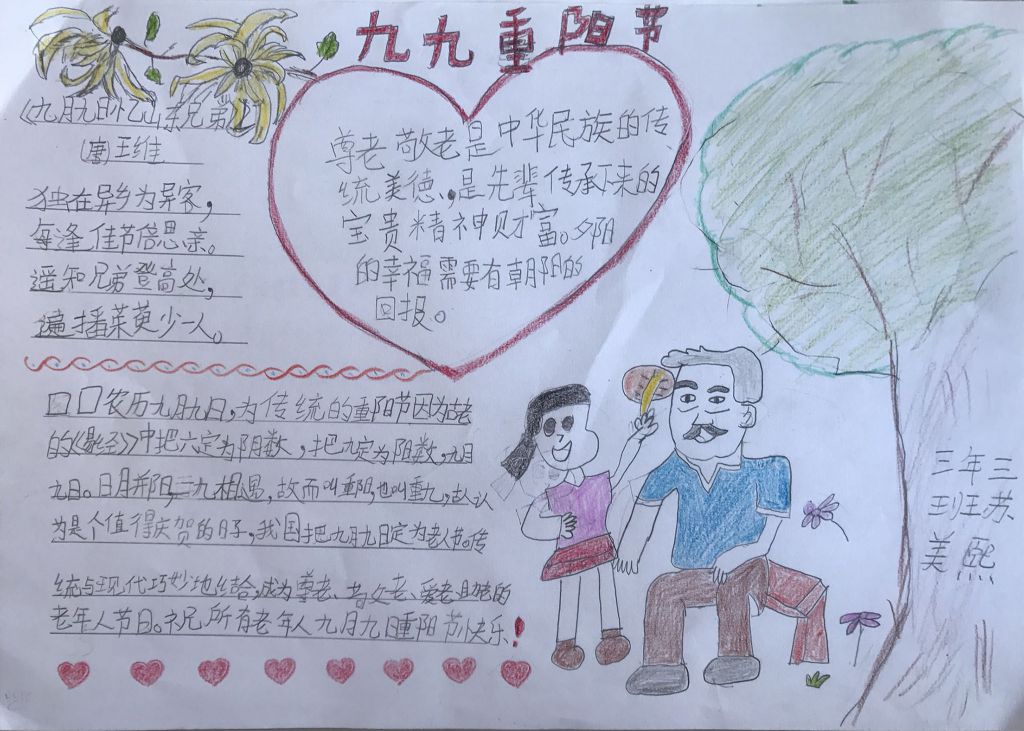 九九重阳节
《九月九日忆山东兄弟》
(唐)王维
独在异乡为异客，
每逢佳节倍思亲。
遥知兄弟登高处，
遍插茱萸少一人。
尊老敬老是中华民族的传
统美德、是先辈传承下来的
宝贵精神财富。夕阳
的幸福需要有朝阳的
回报。
农历九月九日，为传统的重阳节因为古老
的《易经》中把六定为阴数，把九定为阳数，九月
九日。日月并阳，二九相遇，故而叫重阳，也叫重九，古人认
为是个值得庆贺的日子，我国把九月九日定为老人节。传
统与现代巧妙地结合，成为尊老、敬老、爱老、助老的
老年人节日。祝所有老年人九月九重阳节快乐！
三年三
王苏
美熙